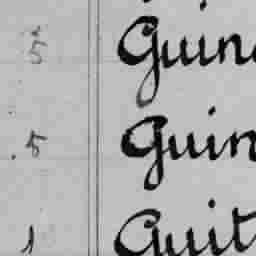 5 Guin
5 Guin
1 Guit